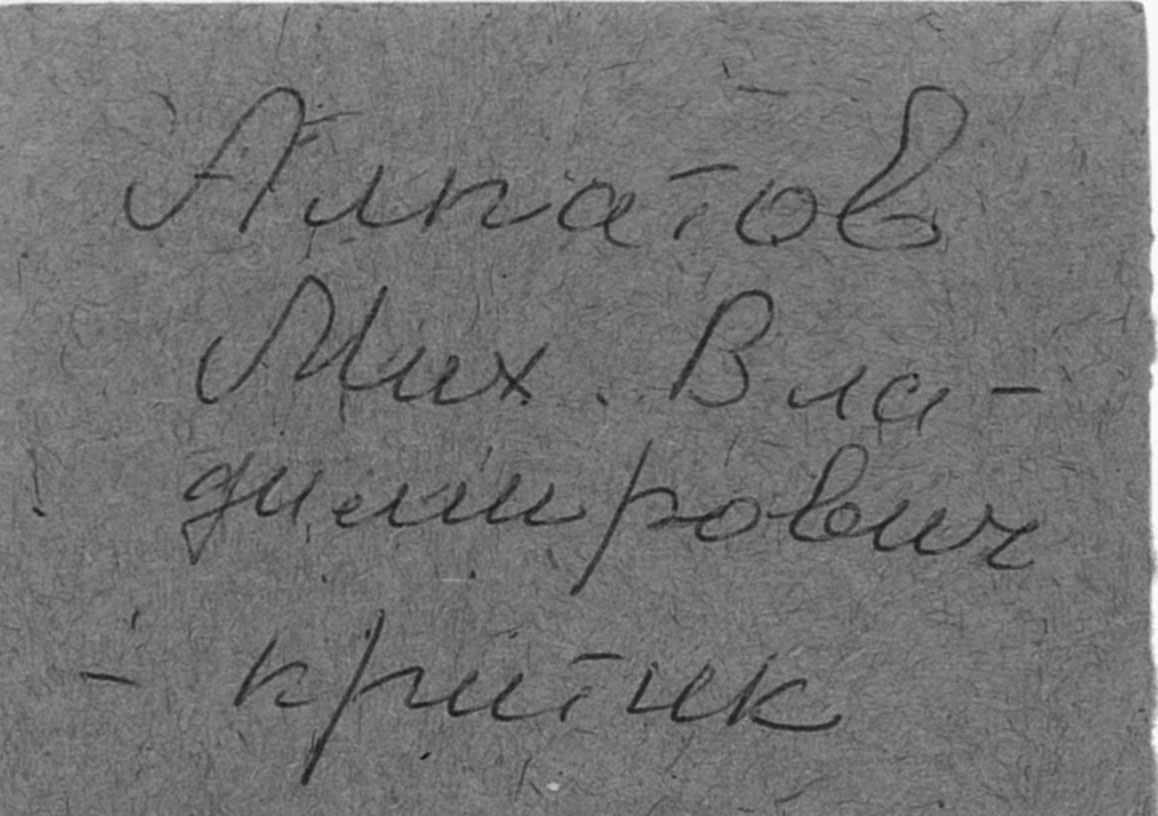 Алпатов
Мих. Вла-
димирович
- критик